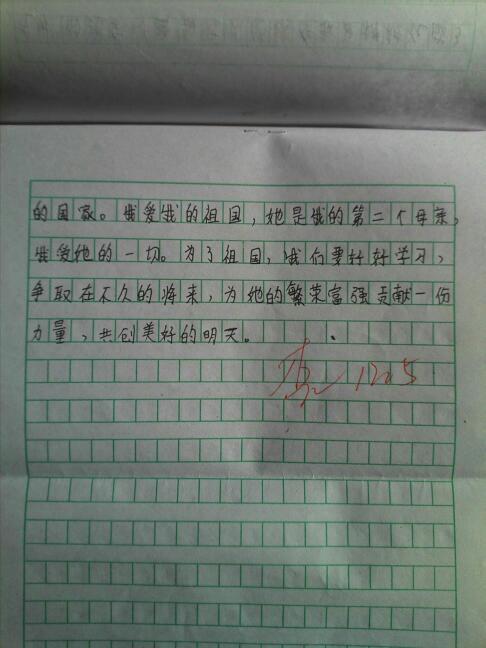 的国家。我爱我的祖国，她是我的第二个母亲，
我爱她的一切。为了祖国，我们要好好学习，
争取在不久的将来，为她的繁荣富强贡献一份
力量，共创美好的明天。